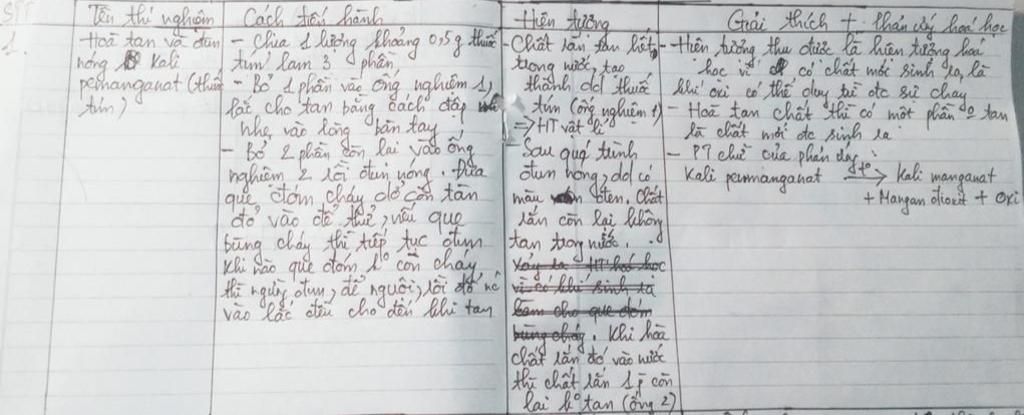 STT
Tên thí nghiệm
Cách tiến hành
Hiện tượng
Giải thích + phản ứng hoá học
1.
Hoà tan và đun
nóng Kali
pemanganat (thuốc
tím)
- Chia 1 lượng khoảng 0,5g thuốc
tím làm 3 phần
- Bỏ 1 phần vào ống nghiệm 1,
lắc cho tan bằng cách đập
nhẹ vào lòng bàn tay
- Bỏ 2 phần còn lại vào ống
nghiệm 2 rồi đun nóng. Đưa
que đóm cháy dở còn tàn
đỏ vào để thử, nếu que
bùng cháy thì tiếp tục đun
Khi nào que đóm ko còn cháy
thì ngừng đun, để nguội, rồi đổ nc
vào lắc đều cho đến khi tan
- Chất rắn tan hết
trong nước, tạo
thành dd thuốc
tím (ống nghiệm 1)
=> HT vật lí
- Sau quá trình
đun nóng, dd có
màu đen. Chất
rắn còn lại không
tan trong nước.
Xảy ra HT hoá học
vì có khí sinh ra
làm cho que đóm
bùng cháy. Khi hoà
chất rắn đó vào nước
thì chất rắn 1p còn
lại ko tan (ống 2)
- Hiện tượng thu được là hiện tượng hoá
học vì có chất mới sinh ra, là
khí oxi có thể duy trì đc sự cháy
- Hoà tan chất thì có một phần ko tan
là chất mới đc sinh ra
- PT chữ của phản ứng:
Kali pemanganat to→ Kali manganat
+ Mangan đioxit + Oxi